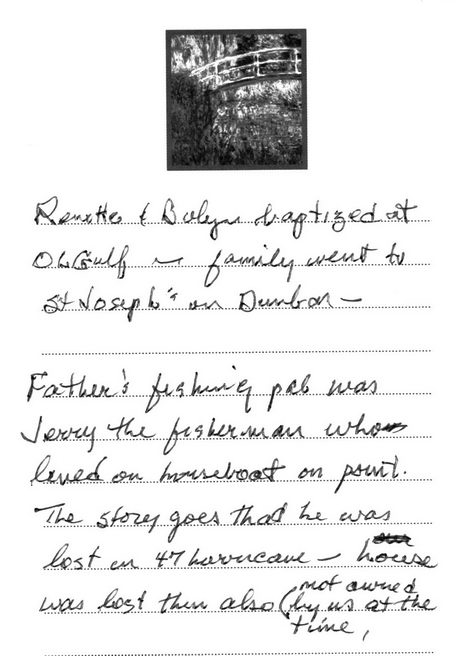 Renette & Bolyn baptized at
OLGulf — family went to
St Joseph's on Dunbar —
Father's fishing pal was
Jerry the fisherman who
lived on houseboat on point.
The story goes that he was
lost in 47 hurricane — house
was lost then also (not owned
by us at the
time,